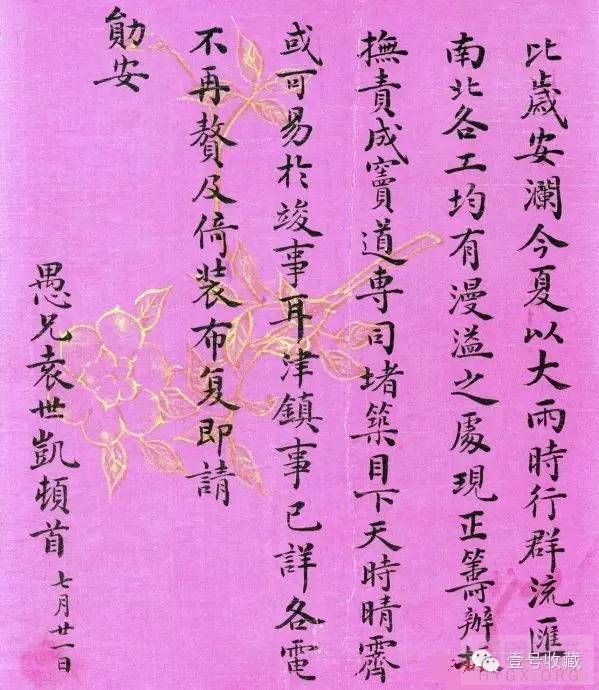 比歲安瀾今夏以大雨時行群流匯
南北各工均有漫溢之處現正籌辦
撫責成竇道專司堵築目下天時晴霽
或可易於竣事耳津鎮事已詳各電
不再贅及倚裝布复即請
勛安
愚兄袁世凱頓首 七月廿一日
壹号收藏
HYGX.ORG